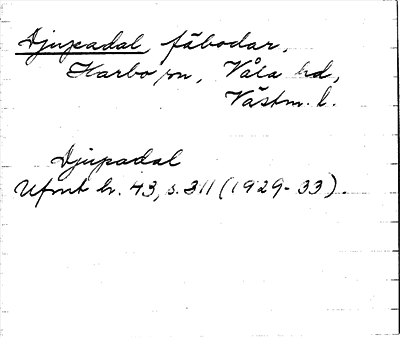 Djupadal, fäbodar,
Karbo sn, Våla hd,
Västm. l.
Djupadal
Ufmt h. 43, s. 311 (1929-33).